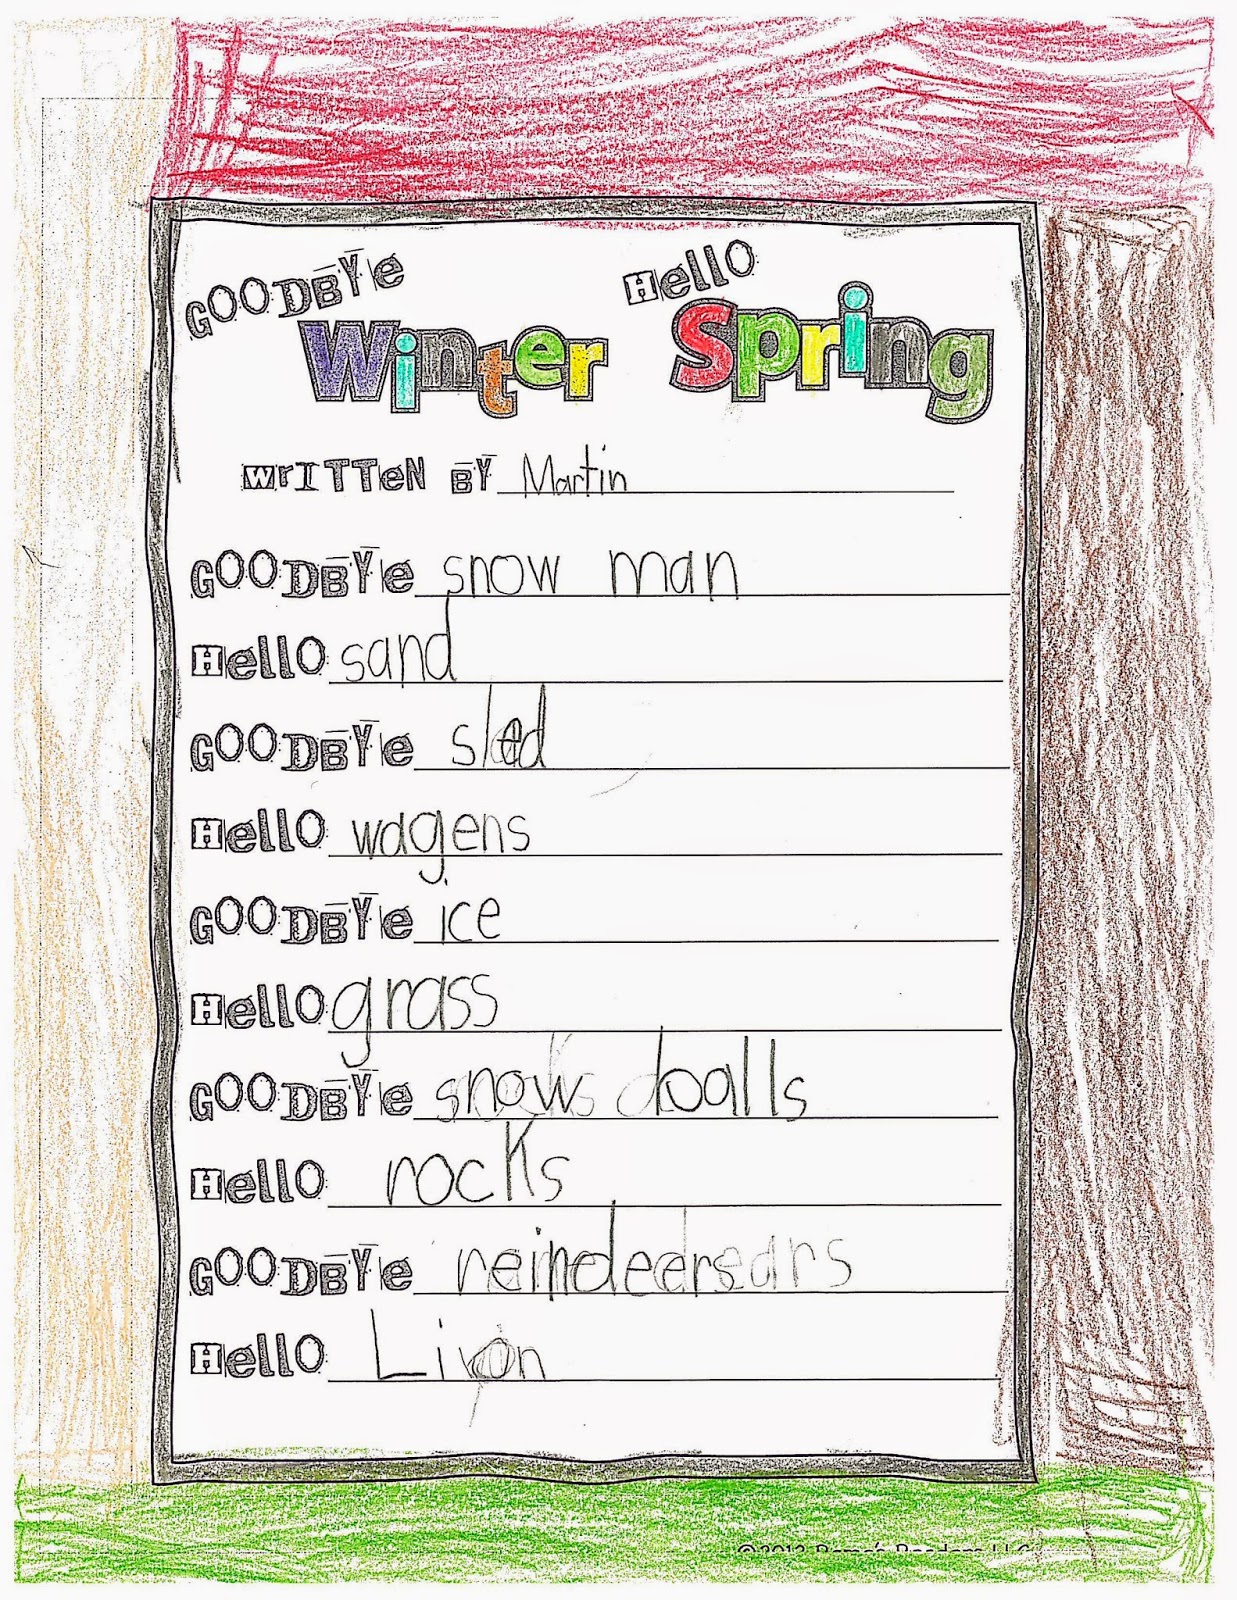 GOODBYE Hello
Winter Spring
WRITTEN BY Martin
GOODBYE snow man
Hello sand
GOODBYE sled
Hello wagens
GOODBYE ice
Hello grass
GOODBYE snow balls
Hello rocks
GOODBYE reindeers
Hello Lion
©2013